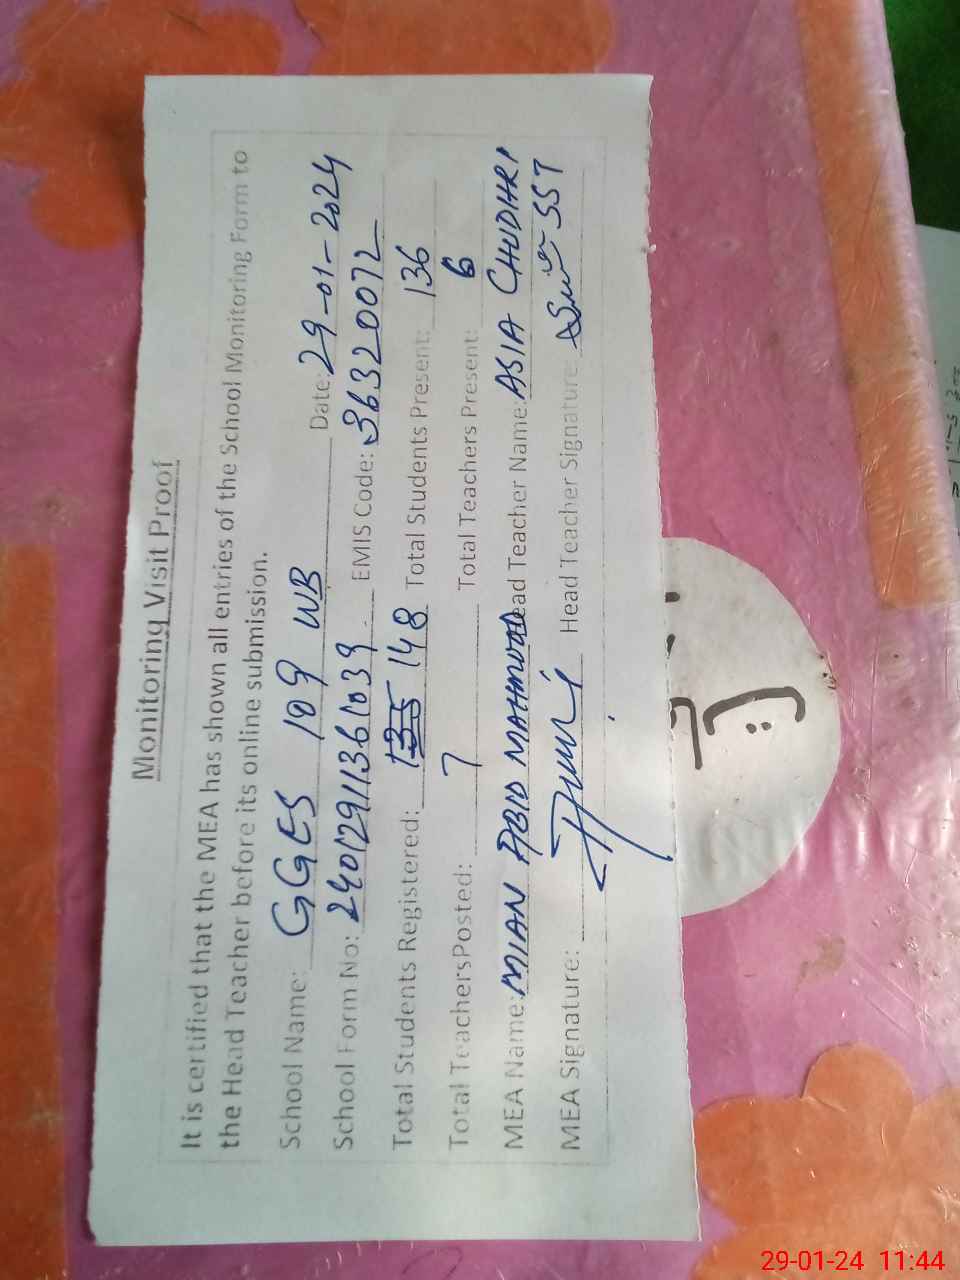 Monitoring Visit Proof
It is certified that the MEA has shown all entries of the School Monitoring Form to
the Head Teacher before its online submission.
School Name: GGES 109 WB Date: 29-01-2024
School Form No: 24012911361039 EMIS Code: 36320072
Total Students Registered: 135 148 Total Students Present: 136
Total TeachersPosted: 7 Total Teachers Present: 6
MEA Name: MIAN ABID MAHMOOD Head Teacher Name: ASIA CHUDHRI
MEA Signature: Head Teacher Signature: SST
29-01-24 11:44